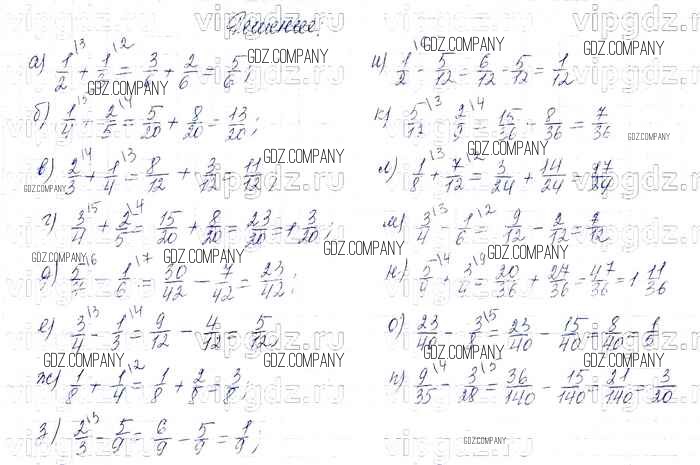 Решение.
а) 1/2 + 1/3 = 3/6 + 2/6 = 5/6;
б) 1/4 + 2/5 = 5/20 + 8/20 = 13/20;
в) 2/3 + 1/4 = 8/12 + 3/12 = 11/12;
г) 3/4 + 2/5 = 15/20 + 8/20 = 23/20 = 1 3/20;
д) 5/7 - 1/6 = 30/42 - 7/42 = 23/42;
е) 3/4 - 1/3 = 9/12 - 4/12 = 5/12;
ж) 1/8 + 1/4 = 1/8 + 2/8 = 3/8;
з) 2/3 - 5/9 = 6/9 - 5/9 = 1/9;
и) 1/2 - 5/12 = 6/12 - 5/12 = 1/12
к) 5/12 - 2/9 = 15/36 - 8/36 = 7/36
л) 1/8 + 7/12 = 3/24 + 14/24 = 17/24
м) 3/4 - 1/6 = 9/12 - 2/12 = 7/12
н) 5/9 + 3/4 = 20/36 + 27/36 = 47/36 = 1 11/36
о) 23/40 - 3/8 = 23/40 - 15/40 = 8/40 = 1/5
п) 9/35 - 3/28 = 36/140 - 15/140 = 21/140 = 3/20
GDZ.COMPANY
vipgdz.ru